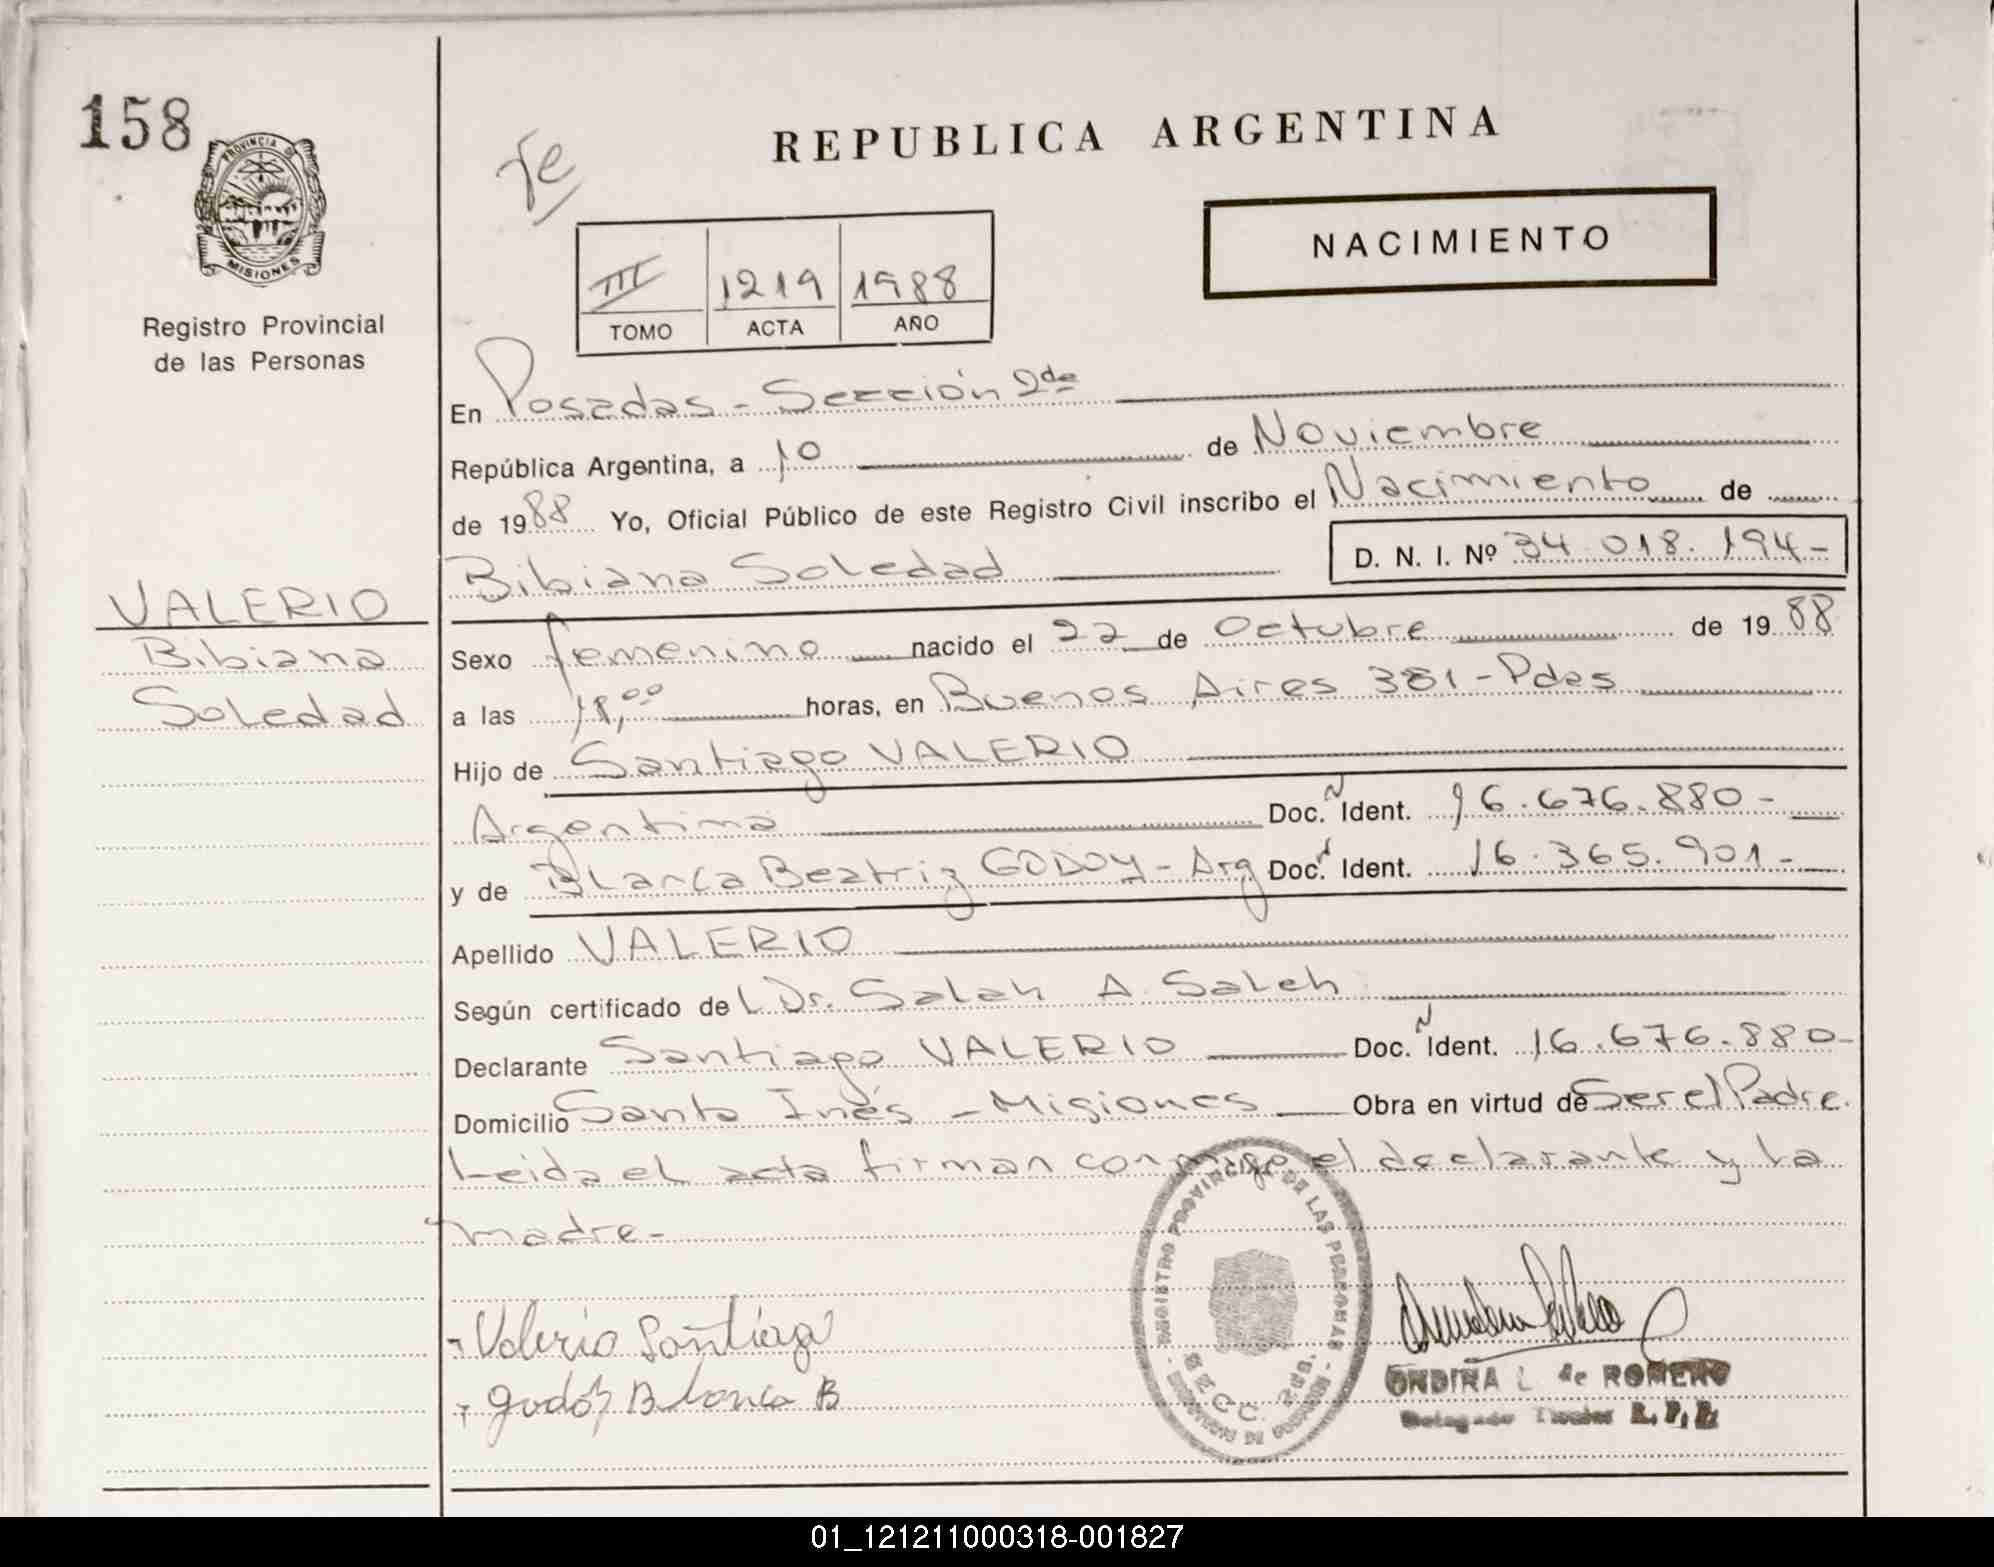 158
PROVINCIA DE
MISIONES
Registro Provincial
de las Personas
REPUBLICA ARGENTINA
NACIMIENTO
III 1219 1988
TOMO ACTA AÑO
En Posadas - Sección 2da
República Argentina, a 10 de Noviembre
de 1988 Yo, Oficial Público de este Registro Civil inscribo el Nacimiento de
Bibiana Soledad D. N. I. Nº 34.018.194-
VALERIO
Bibiana
Soledad
Sexo femenino nacido el 22 de Octubre de 1988
a las 18,00 horas, en Buenos Aires 381 - Pdas
Hijo de Santiago VALERIO
Argentina Doc. N Ident. 16.676.880-
y de Blanca Beatriz GODOY - Arg Doc. Ident. 16.365.901-
Apellido VALERIO
Según certificado de L Dr. Saleh A. Saleh
Declarante Santiago VALERIO Doc. N Ident. 16.676.880-
Domicilio Santa Inés - Misiones Obra en virtud de Ser el Padre.
Leida el acta firman conmigo el declarante y la
madre-
REGISTRO PROVINCIAL DE LAS PERSONAS
SECC. 2da.
- Valerio Santiago
- Godoy Blanca B
ONDINA L de ROMERO
Delegado Titular R. P. P.
01_121211000318-001827